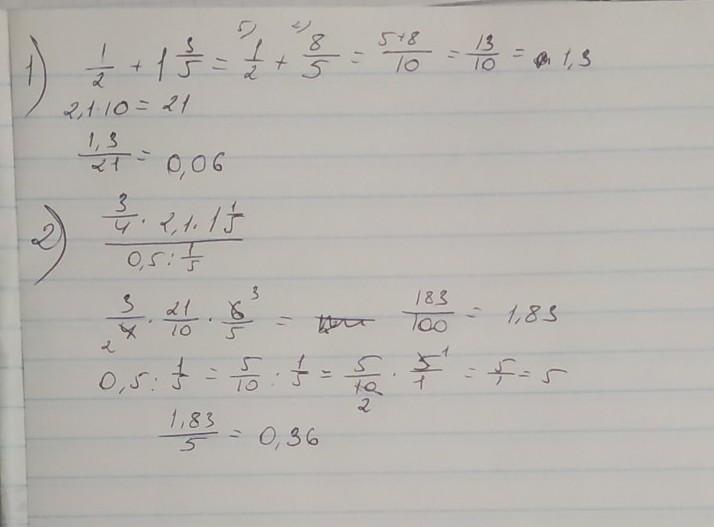 1) 1/2 + 1 3/5 = 5) 1/2 + 2) 8/5 = 5+8/10 = 13/10 = 1,3
2,1·10 = 21
1,3/21 = 0,06
2) 3/4 · 2,1 · 1 1/5
0,5 : 1/5
3/4 2 · 21/10 · 6/5 3 = 183/100 = 1,83
0,5 : 1/5 = 5/10 : 1/5 = 5/10 2 · 5/1 1 = 5/1 = 5
1,83/5 = 0,36